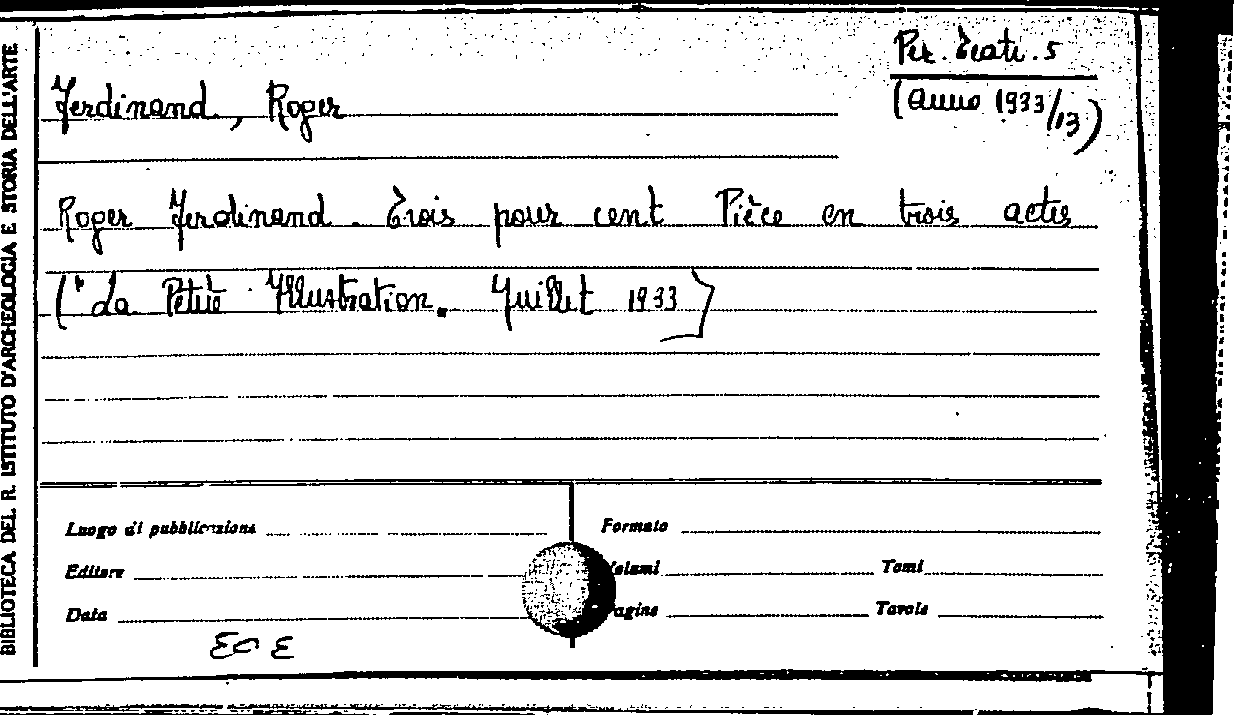 BIBLIOTECA DEL R. ISTITUTO D'ARCHEOLOGIA E STORIA DELL'ARTE
Per. Teatr. 5
(Anno 1933/13)
Ferdinand, Roger
Roger Ferdinand. Trois pour cent Pièce en trois actes
("La Petite Illustration. Juillet 1933)
Luogo di pubblicazione
Formato
Editore
Volumi
Tomi
Data
Pagine
Tavole